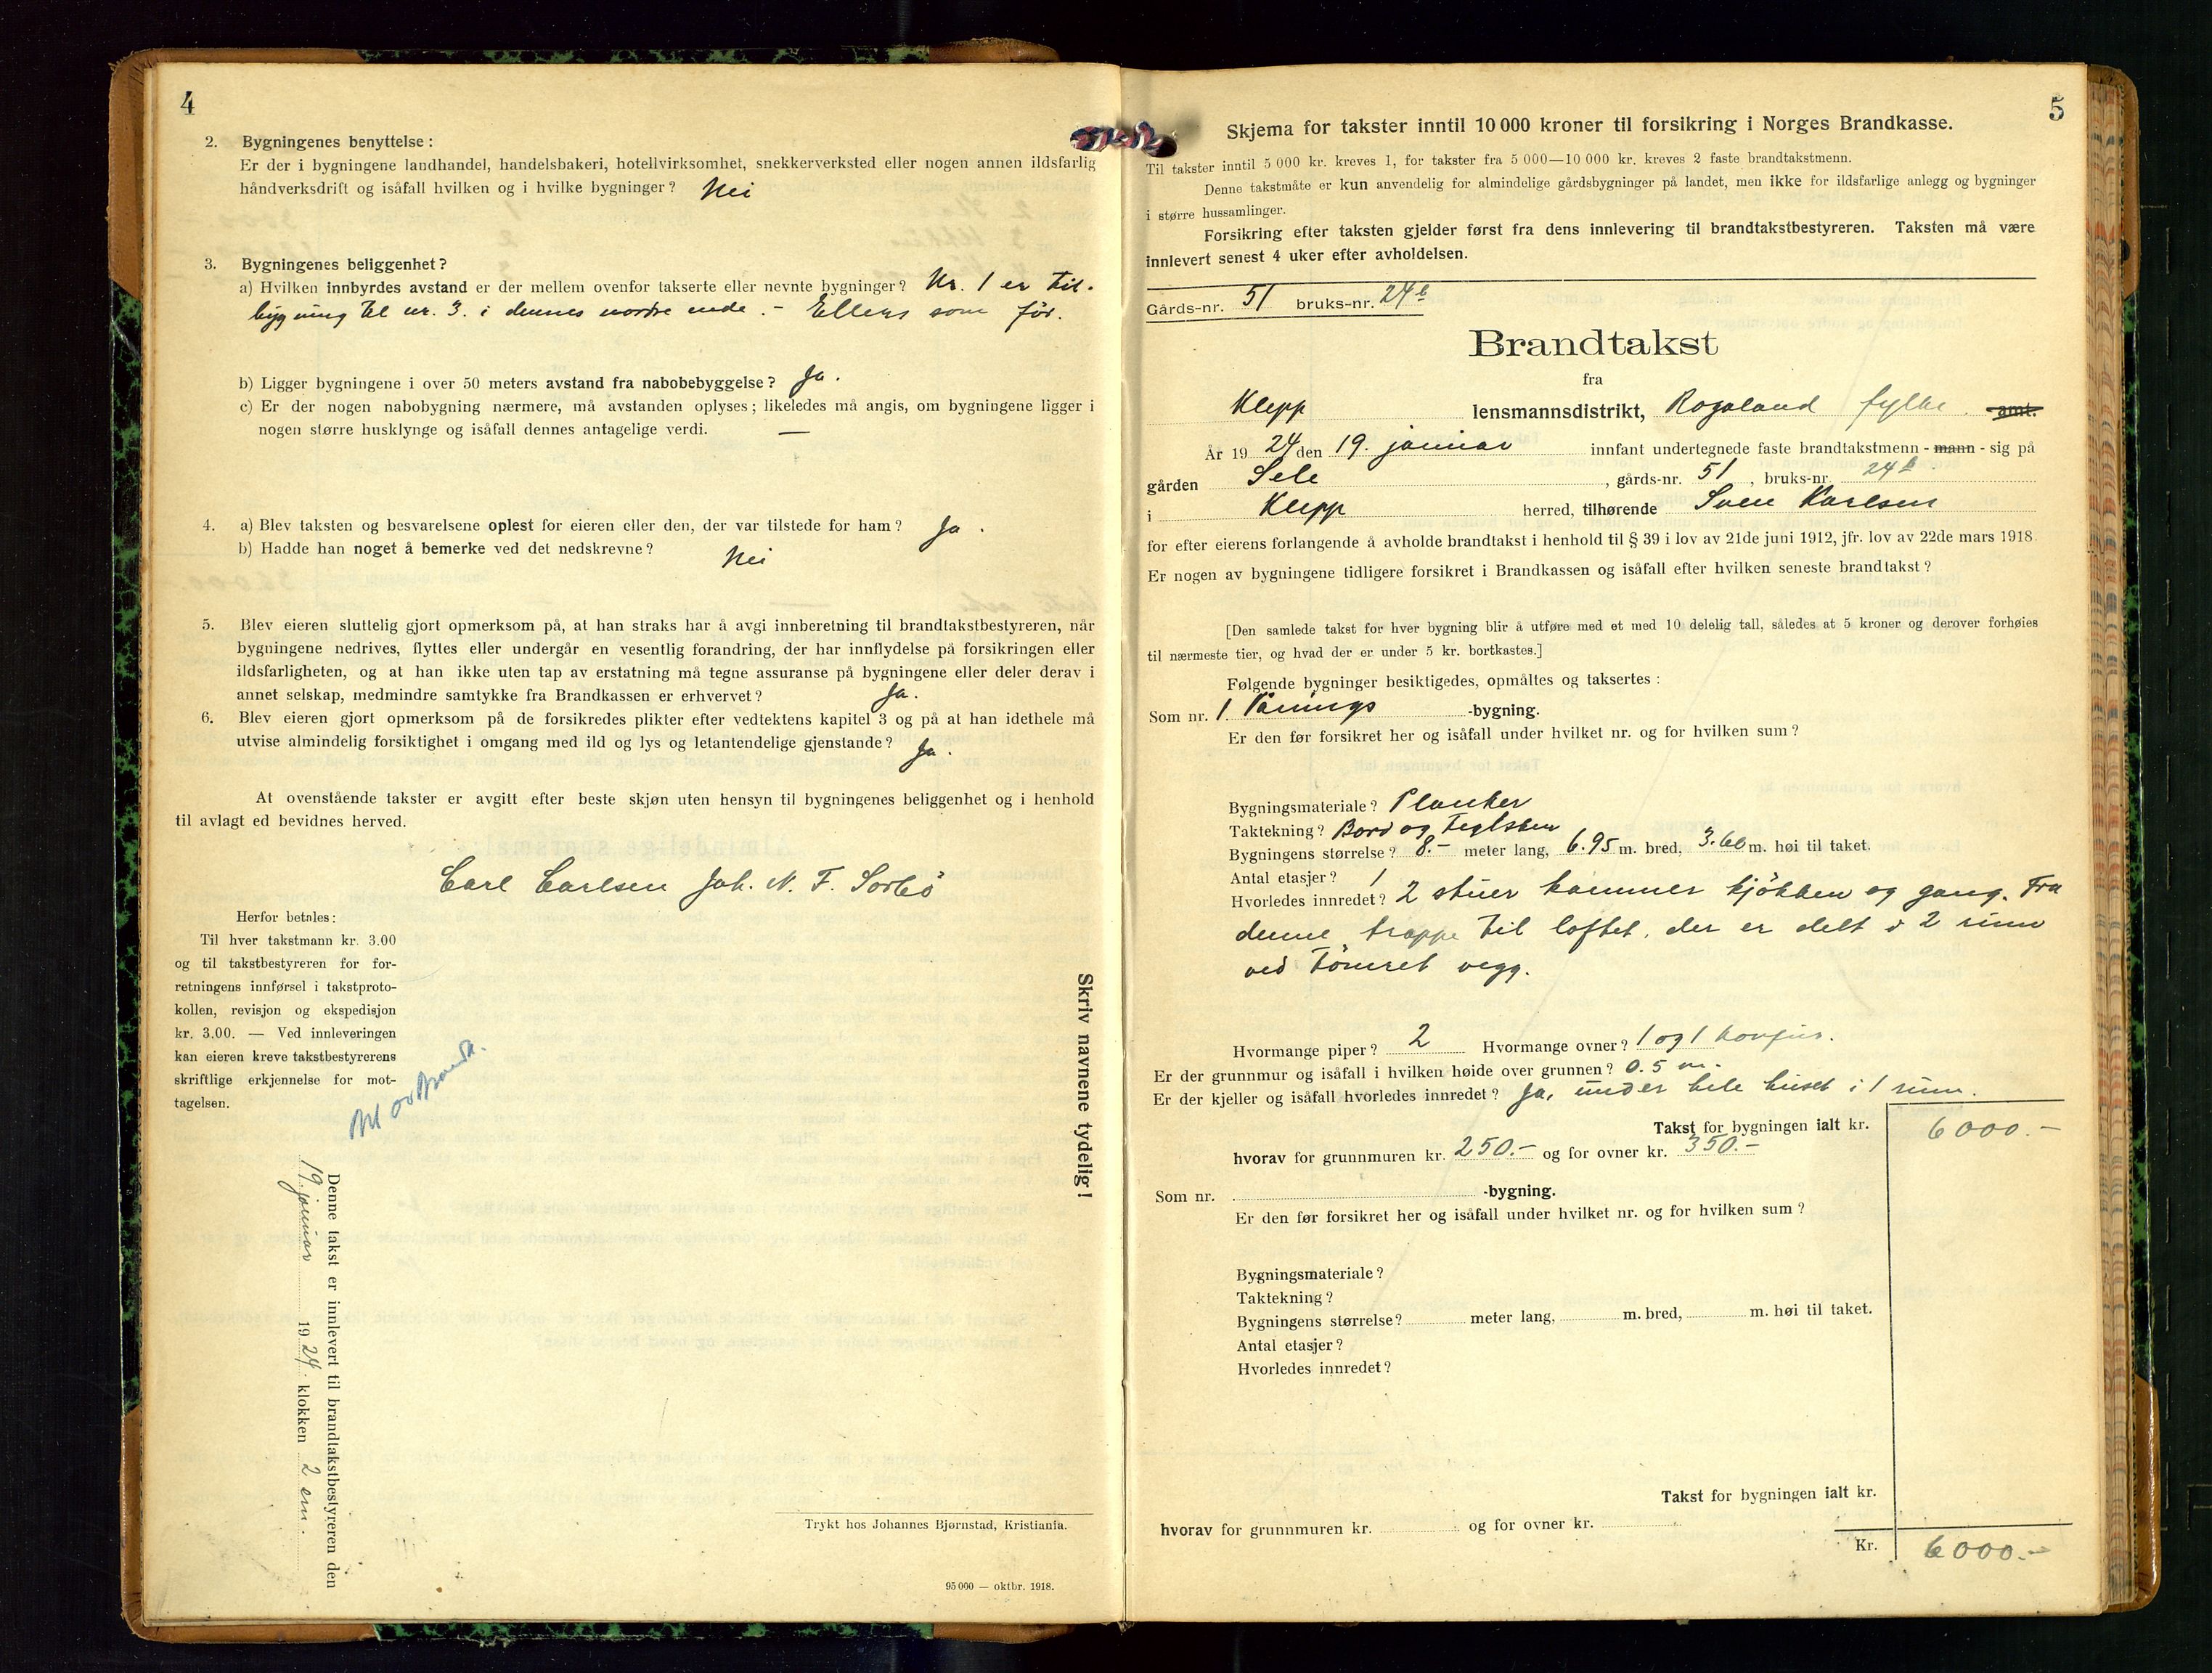 4
2. Bygningenes benyttelse:
Er der i bygningene landhandel, handelsbakeri, hotellvirksomhet, snekkerverksted eller nogen annen ildsfarlig
håndverksdrift og isåfall hvilken og i hvilke bygninger? Nei
3. Bygningenes beliggenhet?
a) Hvilken innbyrdes avstand er der mellem ovenfor takserte eller nevnte bygninger? Nr. 1 er til-
bygning til nr. 3. i dennes nordre ende. - Ellers som før.
b) Ligger bygningene i over 50 meters avstand fra nabobebyggelse? Ja.
c) Er der nogen nabobygning nærmere, må avstanden oplyses; likeledes må angis, om bygningene ligger i
nogen større husklynge og isåfall dennes antagelige verdi. —
4. a) Blev taksten og besvarelsene oplest for eieren eller den, der var tilstede for ham? Ja.
b) Hadde han noget å bemerke ved det nedskrevne? Nei
5. Blev eieren sluttelig gjort opmerksom på, at han straks har å avgi innberetning til brandtakstbestyreren, når
bygningene nedrives, flyttes eller undergår en vesentlig forandring, der har innflydelse på forsikringen eller
ildsfarligheten, og at han ikke uten tap av erstatning må tegne assuranse på bygningene eller deler derav i
annet selskap, medmindre samtykke fra Brandkassen er erhvervet? Ja.
6. Blev eieren gjort opmerksom på de forsikredes plikter efter vedtektens kapitel 3 og på at han idethele må
utvise almindelig forsiktighet i omgang med ild og lys og letantendelige gjenstande? Ja.
At ovenstående takster er avgitt efter beste skjøn uten hensyn til bygningenes beliggenhet og i henhold
til avlagt ed bevidnes herved.
Carl Carlsen Joh. N. F. Sørbö
Herfor betales:
Til hver takstmann kr. 3.00
og til takstbestyreren for for-
retningens innførsel i takstproto-
kollen, revisjon og ekspedisjon
kr. 3.00. — Ved innleveringen
kan eieren kreve takstbestyrerens
skriftlige erkjennelse for mot-
tagelsen.
Skriv navnene tydelig!
Denne takst er innlevert til brandtakstbestyreren den
19. januar 1924 klokken 2 em.
Trykt hos Johannes Bjørnstad, Kristiania.
95 000 — oktbr. 1918.
5
Skjema for takster inntil 10 000 kroner til forsikring i Norges Brandkasse.
Til takster inntil 5 000 kr. kreves 1, for takster fra 5 000—10 000 kr. kreves 2 faste brandtakstmenn.
Denne takstmåte er kun anvendelig for almindelige gårdsbygninger på landet, men ikke for ildsfarlige anlegg og bygninger
i større hussamlinger.
Forsikring efter taksten gjelder først fra dens innlevering til brandtakstbestyreren. Taksten må være
innlevert senest 4 uker efter avholdelsen.
Gårds-nr. 51 bruks-nr. 24b
Brandtakst
fra
Klepp lensmannsdistrikt, Rogaland fylke amt.
År 1924 den 19. januar innfant undertegnede faste brandtakstmenn - mann - sig på
gården Sele, gårds-nr. 51, bruks-nr. 24b
i Klepp herred, tilhørende Sven Karlsen
for efter eierens forlangende å avholde brandtakst i henhold til § 39 i lov av 21de juni 1912, jfr. lov av 22de mars 1918.
Er nogen av bygningene tidligere forsikret i Brandkassen og isåfall efter hvilken seneste brandtakst?
[Den samlede takst for hver bygning blir å utføre med et med 10 delelig tall, således at 5 kroner og derover forhøies
til nærmeste tier, og hvad der er under 5 kr. bortkastes.]
Følgende bygninger besiktigedes, opmåltes og taksertes:
Som nr. 1 Vånings -bygning.
Er den før forsikret her og isåfall under hvilket nr. og for hvilken sum?
Bygningsmateriale? Planker
Taktekning? Bord og Teglsten
Bygningens størrelse? 8.- meter lang, 6.95 m. bred, 3.60 m. høi til taket.
Antal etasjer? 1
Hvorledes innredet? 2 stuer kammer kjökken og gang. Fra
denne trappe til loftet, der er delt i 2 rum
ved tömret vegg.
Hvormange piper? 2 Hvormange ovner? 1 og 1 komfur.
Er der grunnmur og isåfall i hvilken høide over grunnen? 0.5 m.
Er der kjeller og isåfall hvorledes innredet? Ja, under hele huset i 1 rum.
Takst for bygningen ialt kr. 6000.-
hvorav for grunnmuren kr. 250.- og for ovner kr. 350.-
Som nr. -bygning.
Er den før forsikret her og isåfall under hvilket nr. og for hvilken sum?
Bygningsmateriale?
Taktekning?
Bygningens størrelse? meter lang, m. bred, m. høi til taket.
Antal etasjer?
Hvorledes innredet?
Takst for bygningen ialt kr.
hvorav for grunnmuren kr. og for ovner kr.
Kr. 6000.-